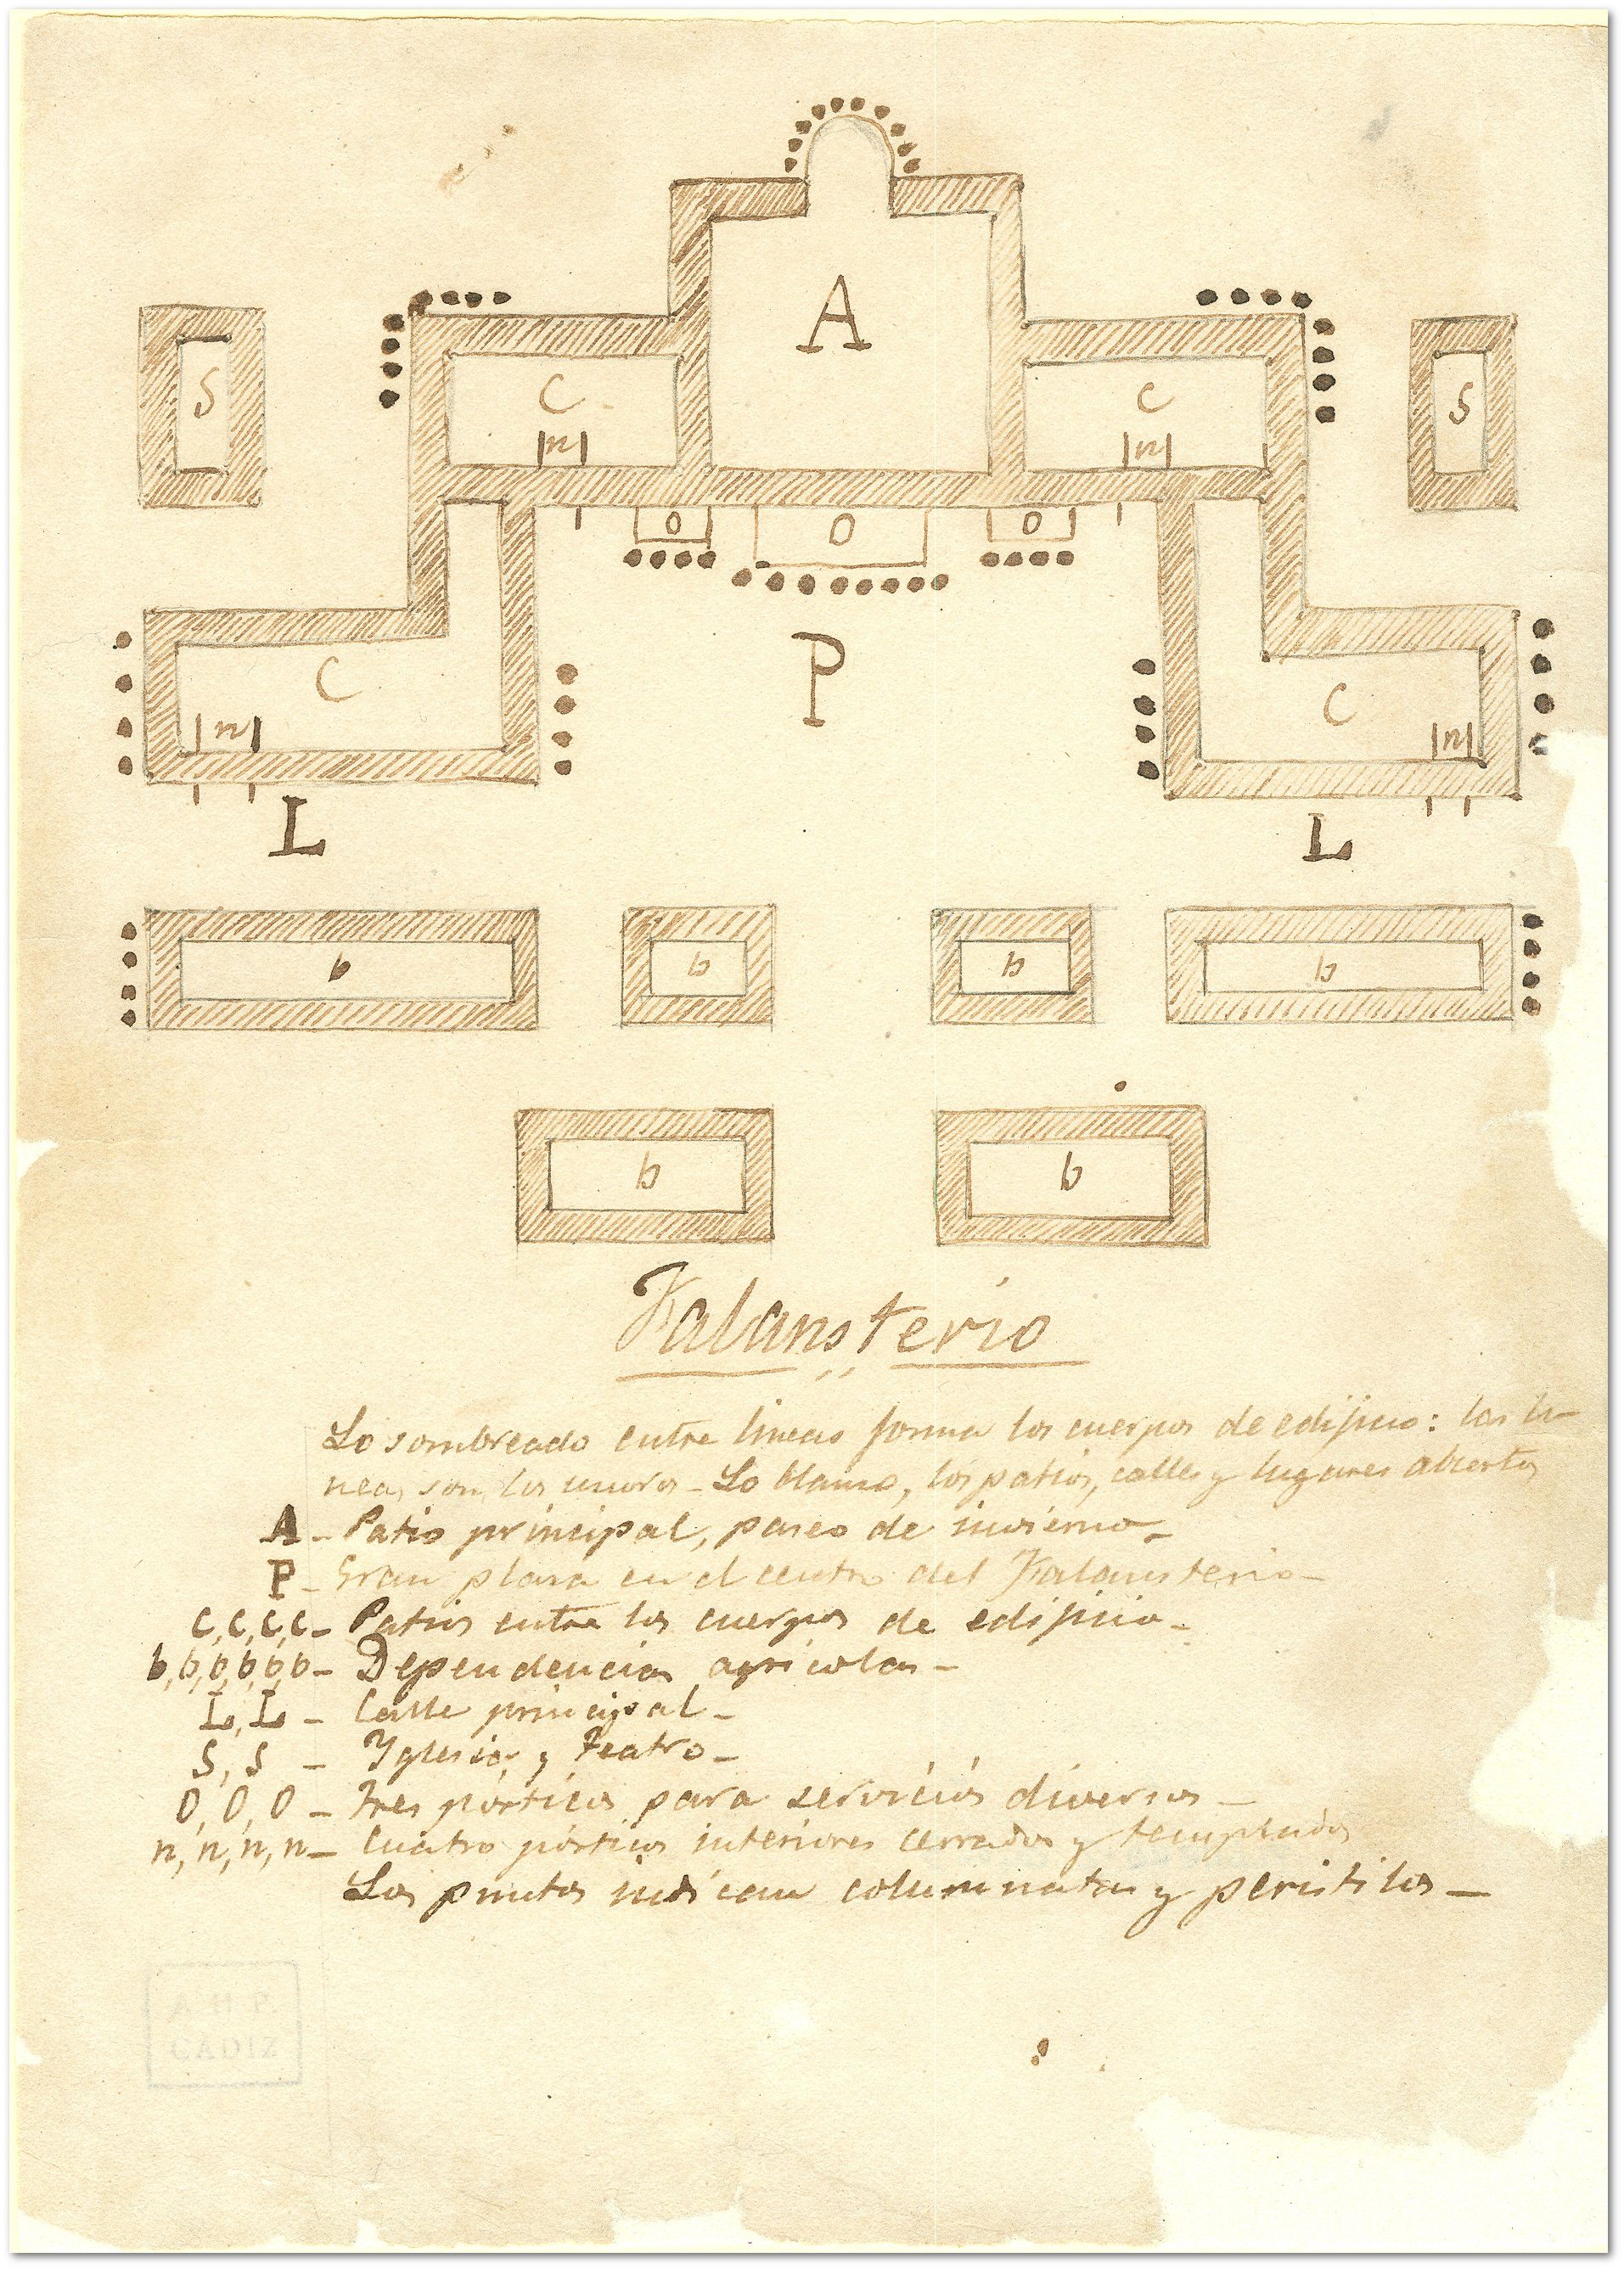 A
S
C
C
S
n
n
O
O
O
P
C
C
n
n
L
L
b
b
b
b
b
b
Falansterio
Lo sombreado entre lineas forma los cuerpos de edificio: las li-
neas son los muros - Lo blanco, los patios, calles y lugares abiertos
A - Patio principal, paseo de invierno -
P - Gran plaza en el centro del Falansterio -
C, C, C, C - Patios entre los cuerpos de edificio -
b, b, b, b, b, b - Dependencias agricolas -
L, L - Calle principal -
S, S - Yglesia y Teatro -
O, O, O - Tres pórticos para servicios diversos -
n, n, n, n - Cuatro pórticos interiores cerrados y templados
Los puntos indican columnatas y peristilos -
A.H.P.
CADIZ